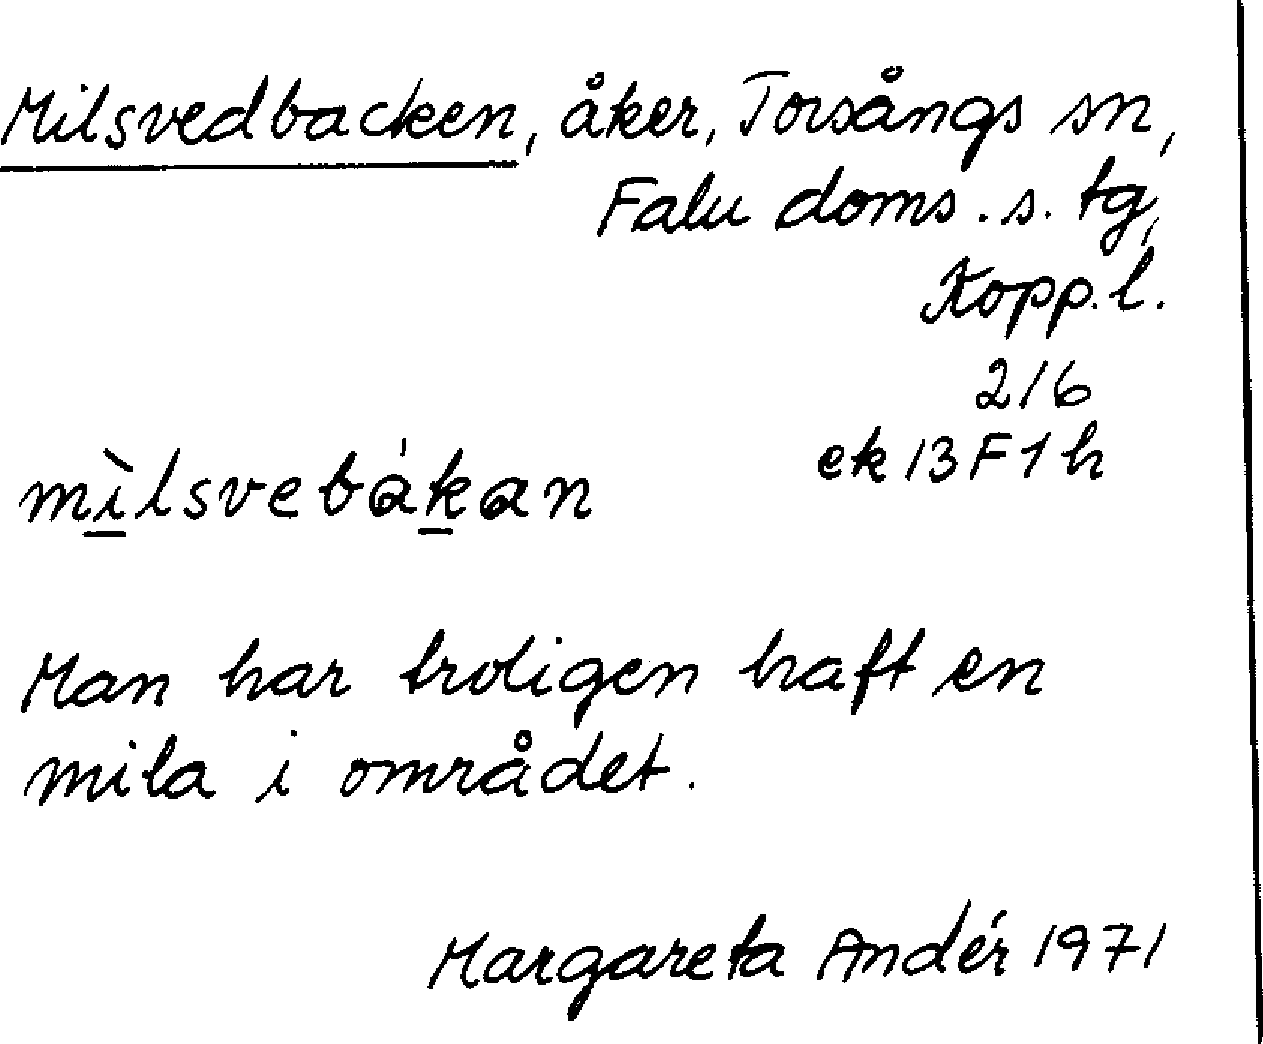 Milsvedbacken, åker, Torsångs sn,
Falu doms.s. tg,
Kopp.l.
216
ek 13 F 1 h
mìlsvebákan
Man har troligen haft en
mila i området.
Margareta Andér 1971